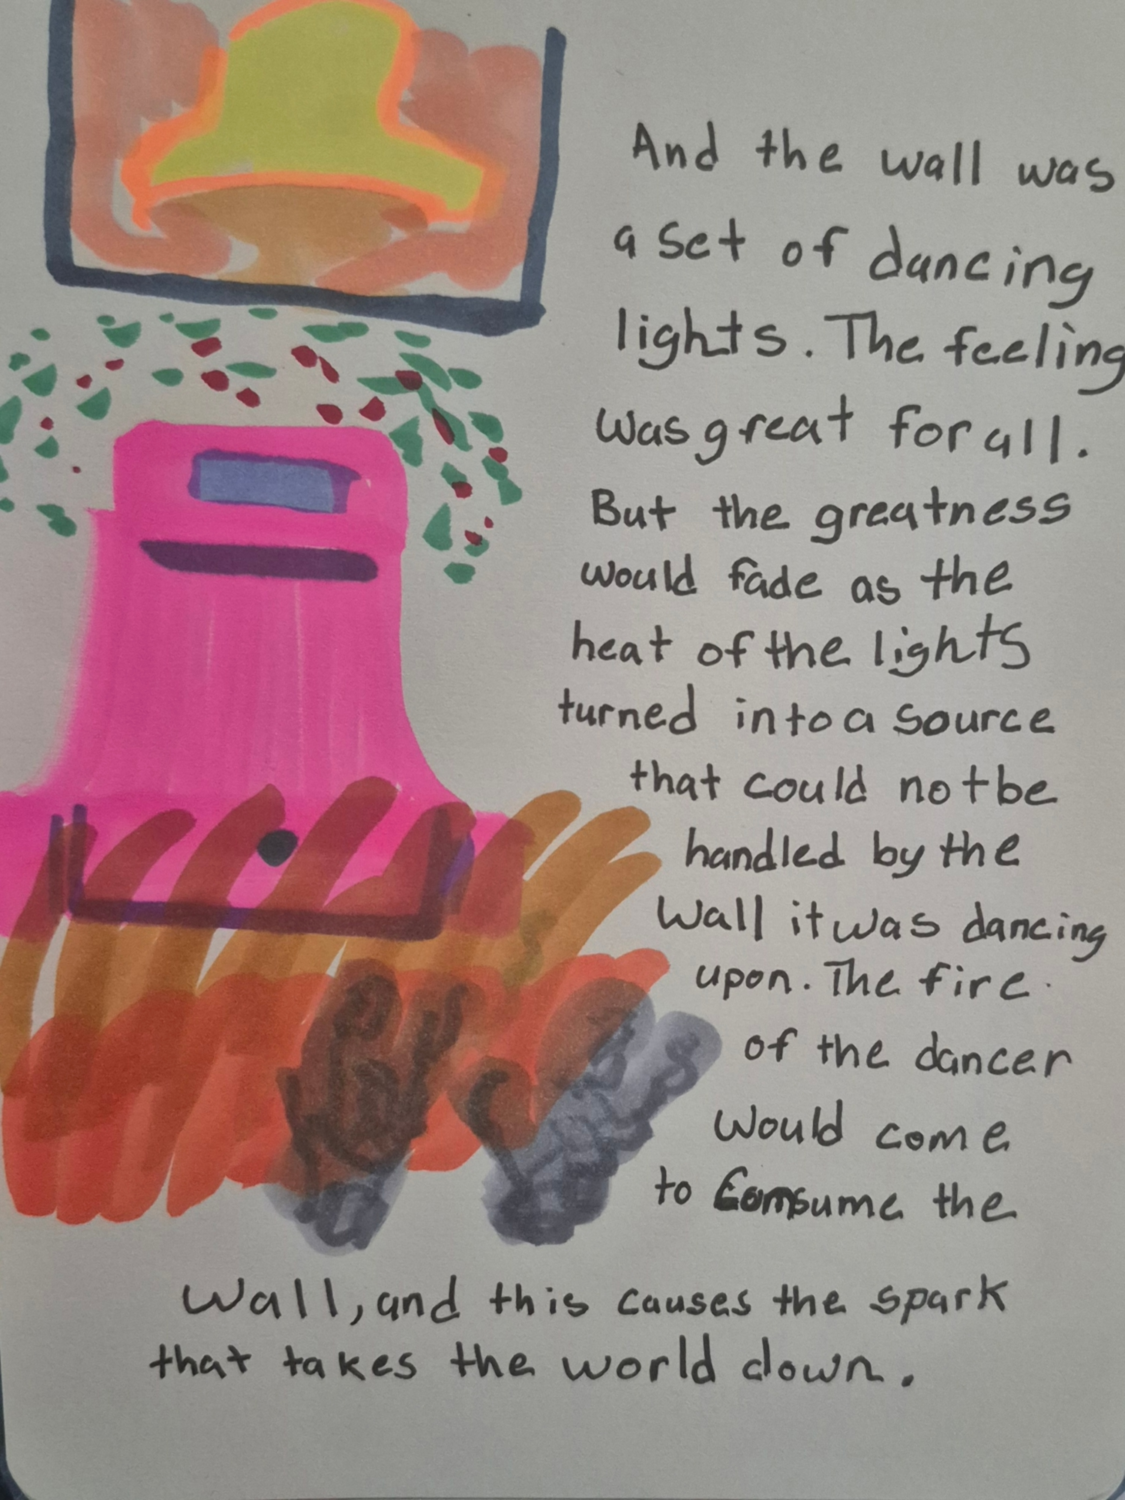 And the wall was
a set of dancing
lights. The feeling
was great for all.
But the greatness
would fade as the
heat of the lights
turned into a source
that could not be
handled by the
wall it was dancing
upon. The fire
of the dancer
would come
to consume the
wall, and this causes the spark
that takes the world down.